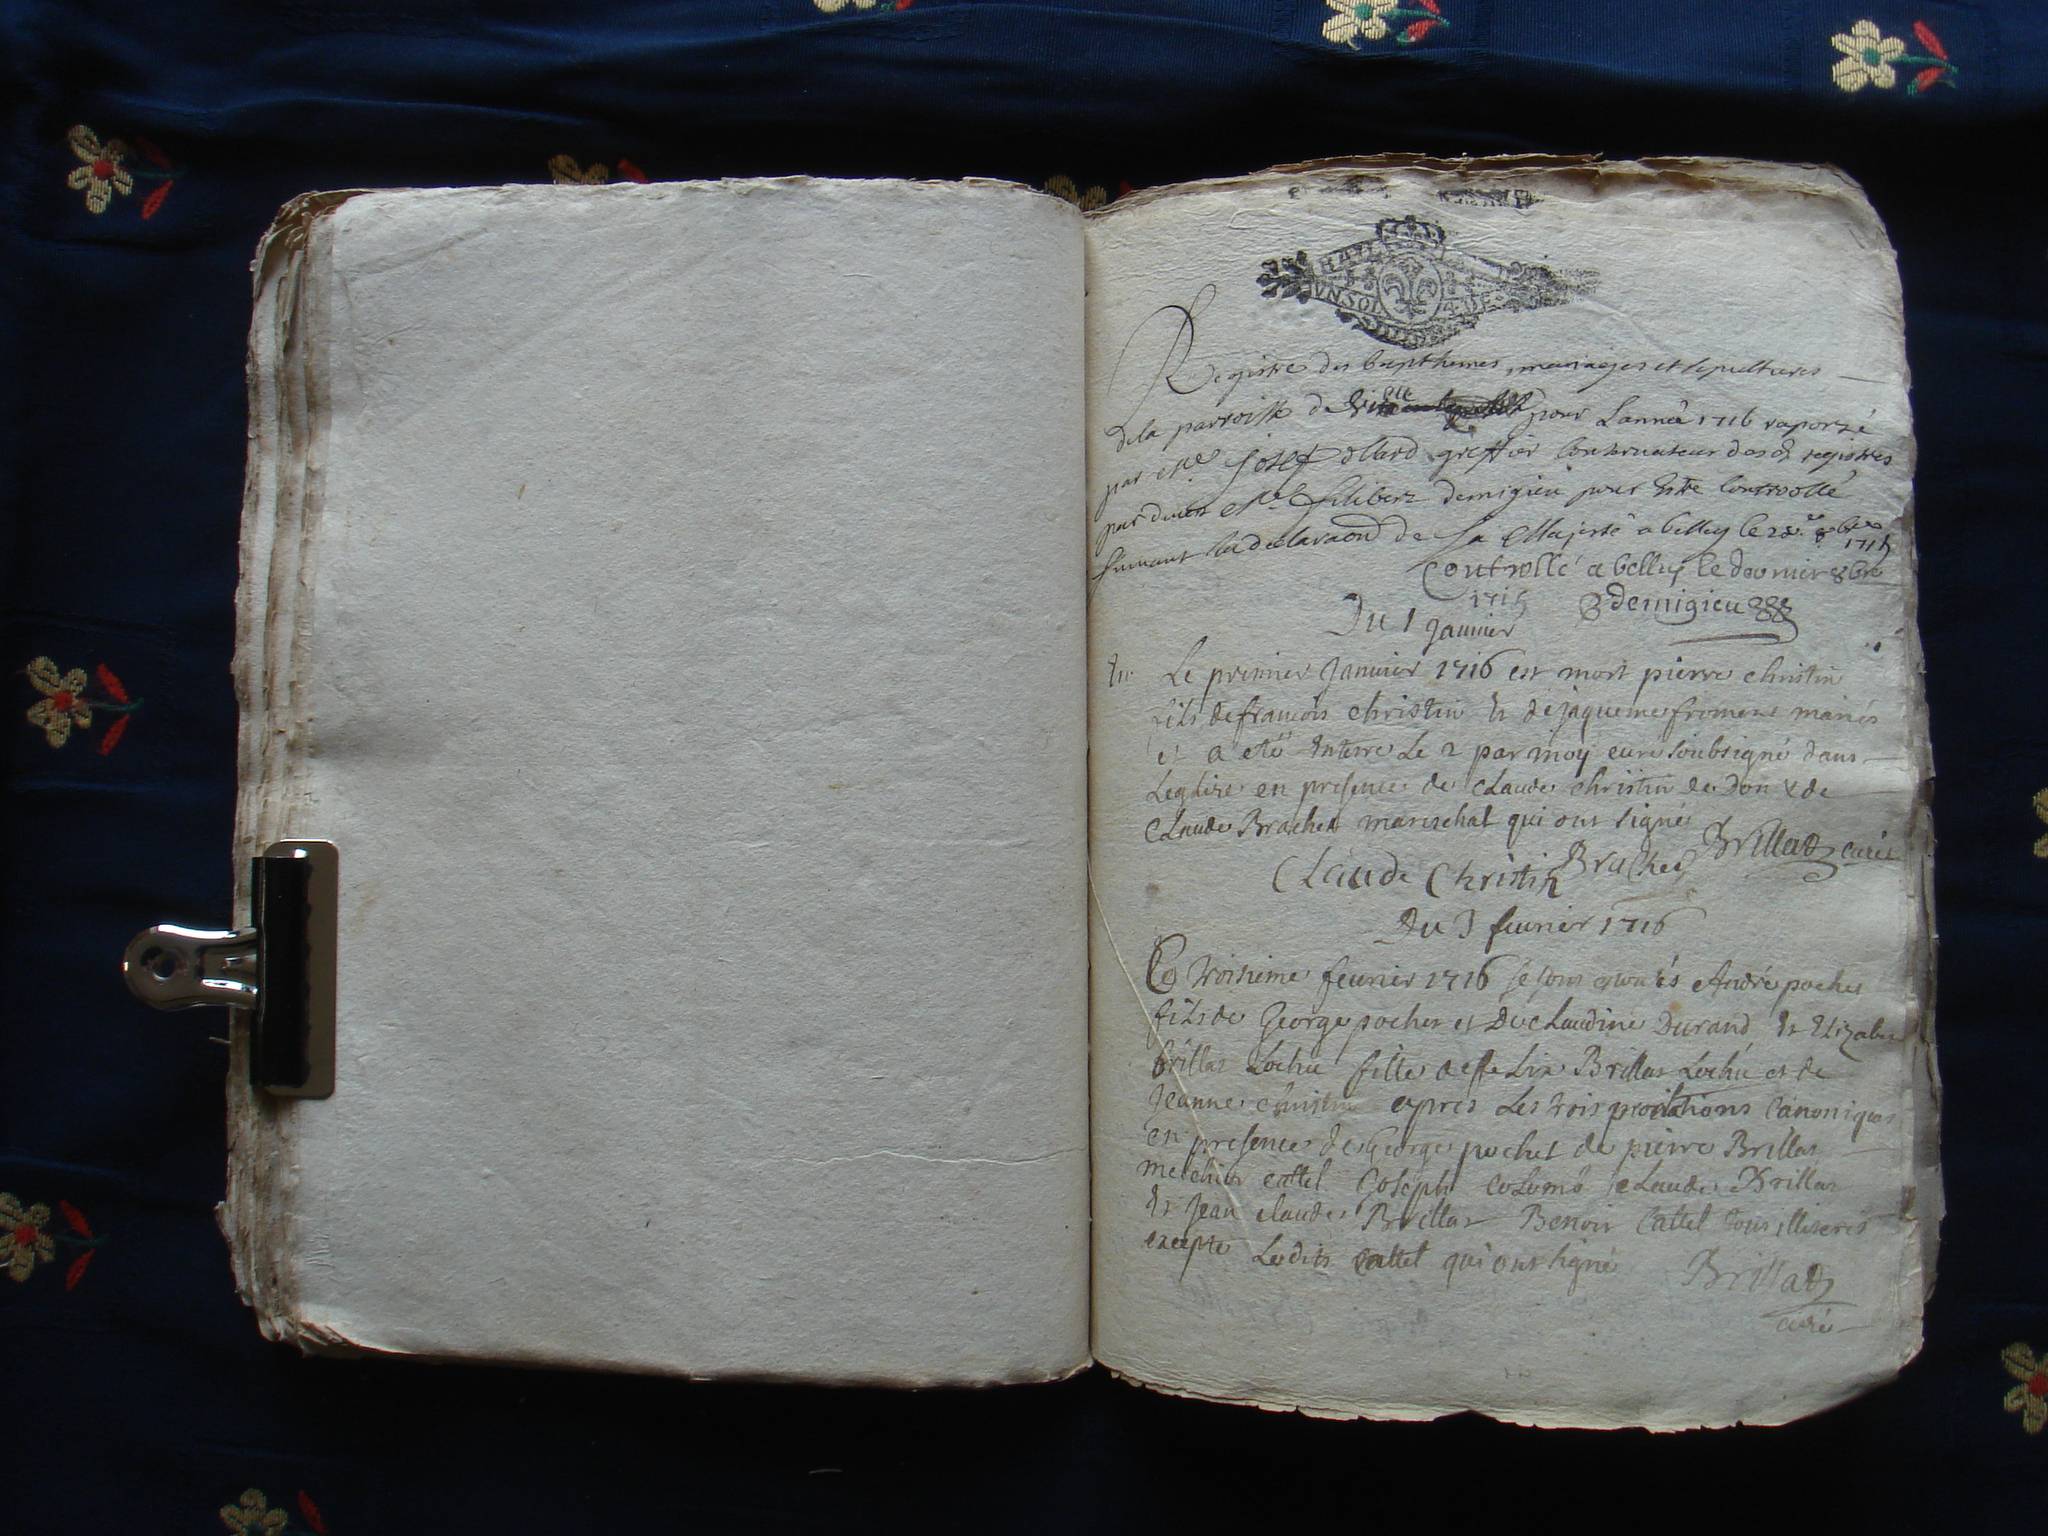 VN SOL
Registre des bapthemes, mariages et sepultures
de la parroisse de pour Lannée 1716 raporté
par Me Josef ollard greffier Conseruateur desd registres
par deuers Me filibert demigieu pour Estre Controollé
suiuant la declaraon de Sa Majesté a belley le 8bre 1715
Controllé a belley le dernier 8bre
1715 demigieu
Du 1 Januier
Le premier Januier 1716 est mort pierre christin
fils de francois christin & de jaqueme froment mariés
et a eté Enterre Le 2 par moy curé soubsigné dans
Leglise en presence de Claude christin de Don & de
Claude Brachet mareschal qui ont signé
Brillat curé
Claude Christin Brachet
Du 3 feurier 1716
Ce troisieme feurier 1716 se sont epousés André pochet
fils de George pochet et De cLaudine Durand & Elizabet
brillat Lochu fille de feLix Brillat Lochu et de
Jeanne christin apres Les trois Canoniques
en presence de George pochet de pierre Brillat
melchior cattel Joseph coLomb cLaude Brillat
& Jean claude Brillat Benoit Cattel tous illiterés
excepté Lesdits cattel qui ont signé Brillat
curé